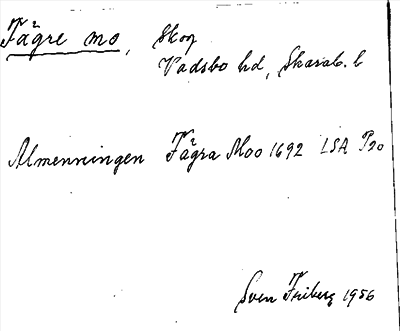 Fågre mo, Skog
Vadsbo hd, Skarab. l
Almenningen Fågra Moo 1692 LSA P20
Sven Friberg 1956